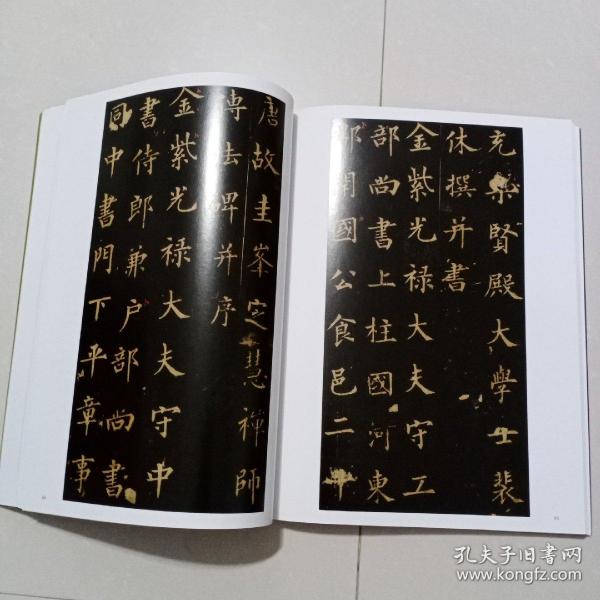 唐故圭峯定慧禅師
傳法碑并序
金紫光禄大夫守中
書侍郎兼户部尚書
同中書門下平章事
充集賢殿大學士裴
休撰并書
金紫光禄大夫守工
部尚書上柱國河東
郡開國公食邑二千
孔夫子旧書网
www.kongfz.com